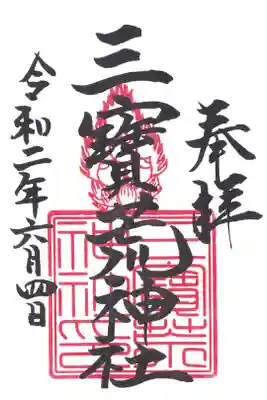 奉拝
三寶荒神社
令和二年六月四日